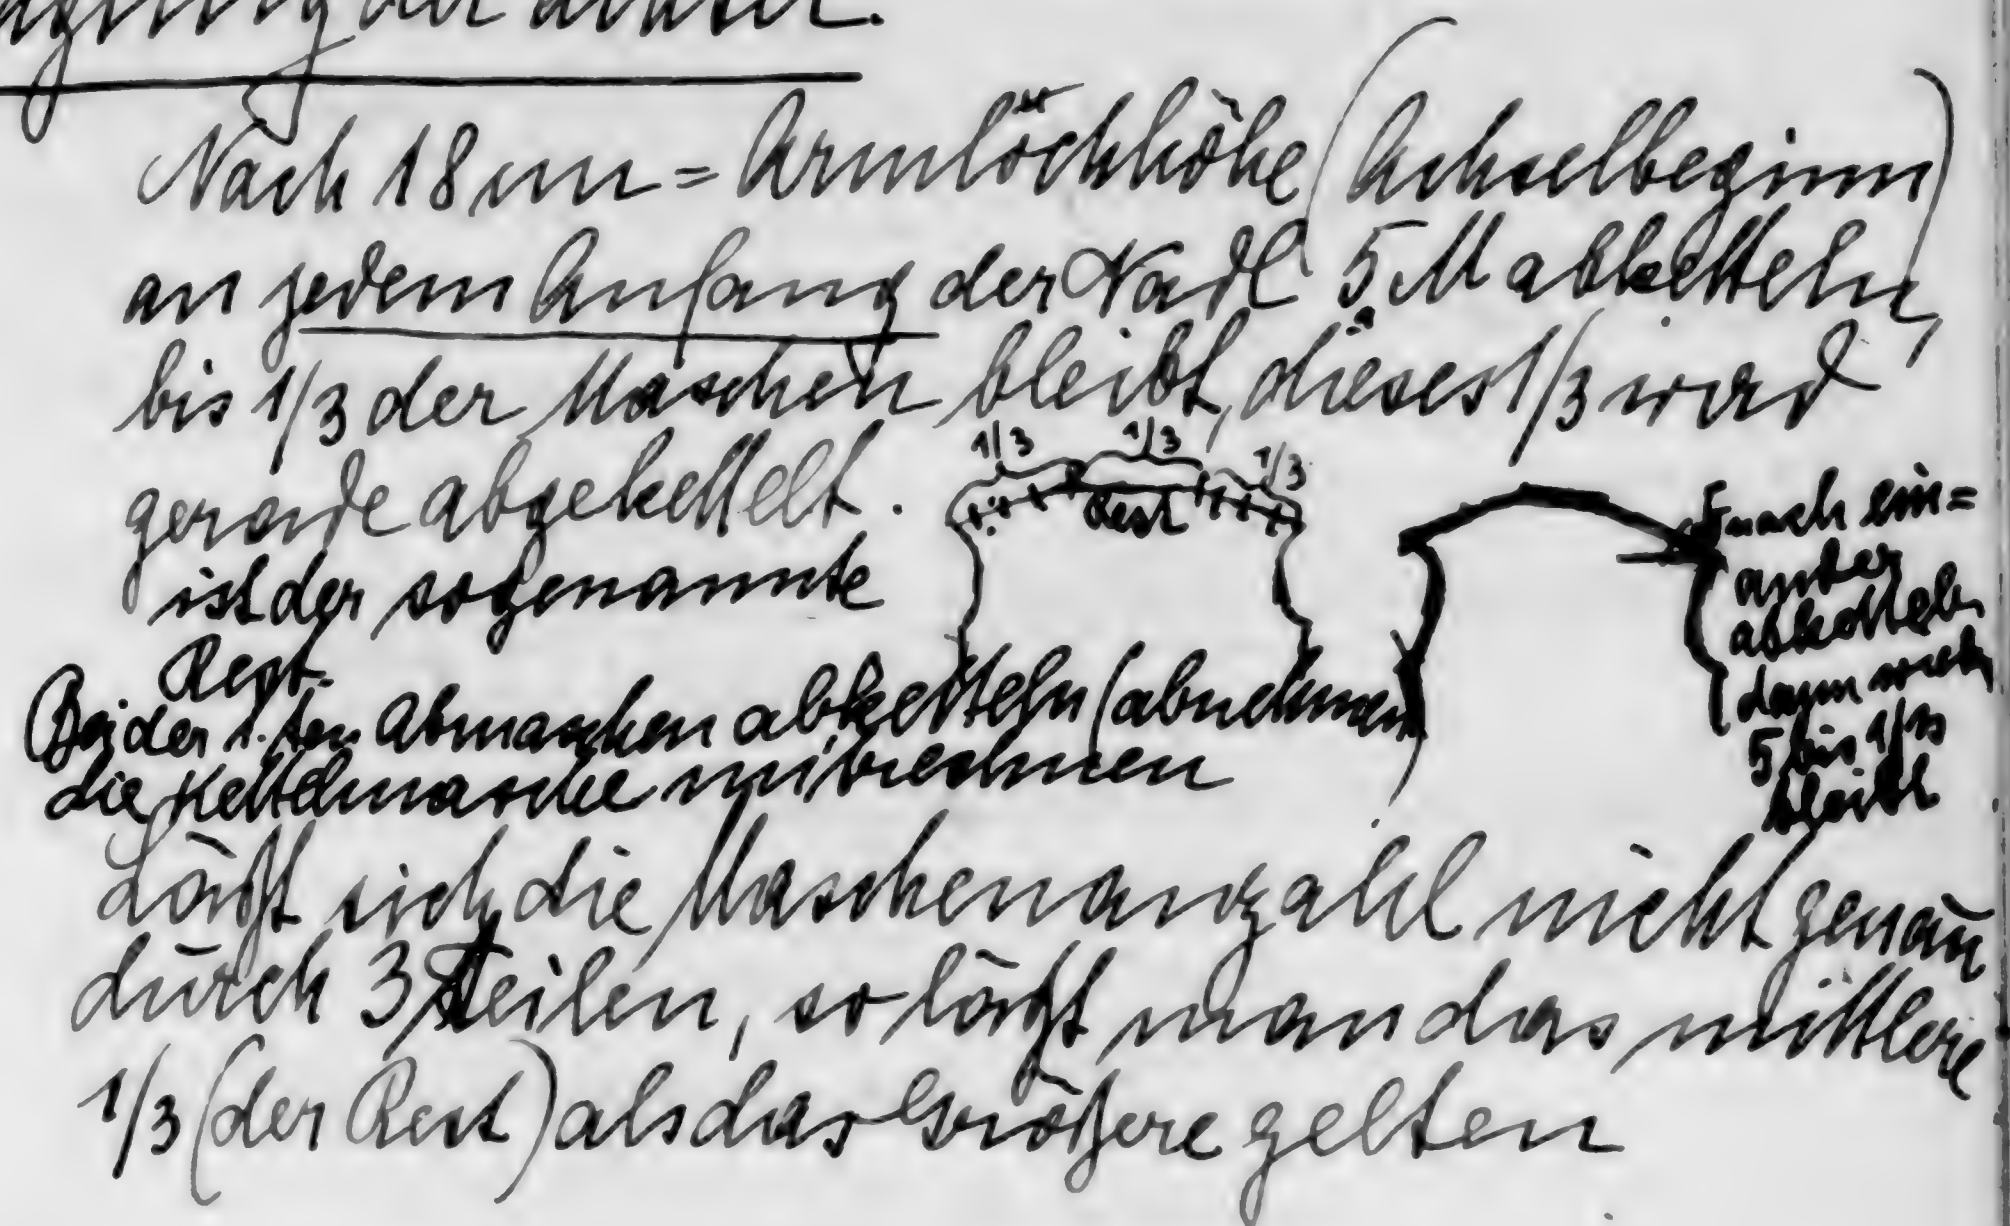 der Achsel.
Nach 18 cm = Armlöchhöhe (Achselbeginn)
an jedem Anfang der Nadl 5 M abketteln,
bis 1/3 der Maschen bleibt, dieses 1/3 wird
gerade abgekettelt.
1/3 1/3 1/3
Rest
ist der sogenannte
Rest.
5 nach ein=
ander
abketteln
dann wieder
5 bis 1/3
bleibt
Bei der 1. ten Abmaschen abketteln (abnehmen)
die Kettelmasche mitrechnen
Läßt sich die Maschenanzahl nicht genau
durch 3 teilen, so läßt man das mittlere
1/3 (der Rest) als das Größere gelten